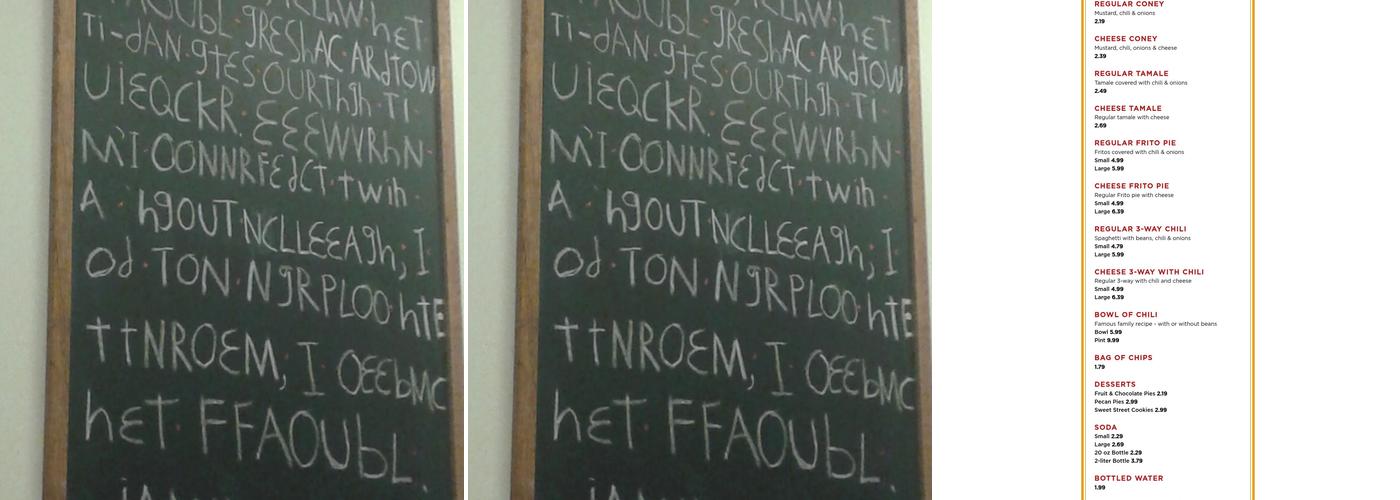 gRESHAC.ARdtOW
Ti-dAN.gtESOURThgh.Ti
UiEQCKR. EEEWVRhN-
M'I OONNRFEdCT.twih
A hgOUTNCLLEEAgh, I
Od.TON.NgRPLOO hTE
ttNROEM, I OEEbMC
hET FFAOUbL.
gRESHAC.ARdtOW
Ti-dAN.gtESOURThgh.Ti
UiEQCKR. EEEWVRhN-
M'I OONNRFEdCT.twih
A hgOUTNCLLEEAgh, I
Od.TON.NgRPLOO hTE
ttNROEM, I OEEbMC
hET FFAOUbL.
REGULAR CONEY
Mustard, chili & onions
2.19
CHEESE CONEY
Mustard, chili, onions & cheese
2.39
REGULAR TAMALE
Tamale covered with chili & onions
2.49
CHEESE TAMALE
Regular tamale with cheese
2.69
REGULAR FRITO PIE
Fritos covered with chili & onions
Small 4.99
Large 5.99
CHEESE FRITO PIE
Regular Frito pie with cheese
Small 4.99
Large 6.39
REGULAR 3-WAY CHILI
Spaghetti with beans, chili & onions
Small 4.79
Large 5.99
CHEESE 3-WAY WITH CHILI
Regular 3-way with chili and cheese
Small 4.99
Large 6.39
BOWL OF CHILI
Famous family recipe - with or without beans
Bowl 5.99
Pint 9.99
BAG OF CHIPS
1.79
DESSERTS
Fruit & Chocolate Pies 2.19
Pecan Pies 2.99
Sweet Street Cookies 2.99
SODA
Small 2.29
Large 2.69
20 oz Bottle 2.29
2-liter Bottle 3.79
BOTTLED WATER
1.99